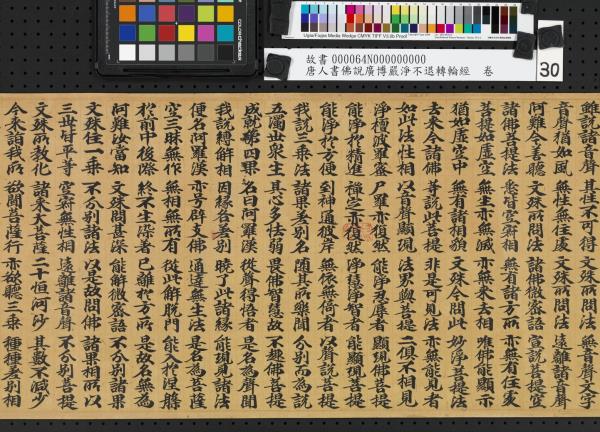 Ugra/Fogra Media Wedge CMYK TIFF V3.0b Proof
故書 000064N000000000
唐人書佛說廣博嚴淨不退轉輪經 卷
30
雖說諸音聲 其性不可得 文殊所問法 無音聲文字
音聲猶如風 性無住處 文殊所問法 遠離諸音聲
阿難今善聽 文殊所問法 諸佛微密語 宣說菩提空
諸佛菩提法 空寂相 無有諸方所 亦無有住處
菩提如虛空 無生亦無滅 亦無來去相 唯佛能顯示
猶如虛空中 無有諸相貌 文殊今問此 妙淨菩提法
去來今諸佛 等說此菩提 非是可見法 亦無能見者
如此法性相 以音聲顯現 法界與菩提 二俱不相見
淨檀波羅蜜 尸羅亦復然 能淨忍辱者 顯現佛菩提
能淨於精進 禪定亦復然 淨慧淨智者 能顯現菩提
能淨於方便 到神通彼岸 無依無倚者 以聲說菩提
我說三乘果 諸果差別名 隨其所樂聞 分別而為說
五濁世眾生 其心多怯弱 畏佛智慧故 不趣佛菩提
成就第四果 名曰阿羅漢 從聲得悟者 是名為聲聞
我說縛解相 因緣各差別 曉了此諸緣 能現見諸法
便名阿羅漢 亦号辟支佛 通達無生法 是名為菩薩
空三昧無作 無相無所有 從此解脫門 能入於涅槃
於前中後際 終不生染著 已離於方所 是故名無為
阿難汝當知 文殊問甚深 能解微密語 不分別諸果
文殊住一乘 不分別諸法 以是故問佛 諸果相所以
三世皆平等 空寂無性相 遠離諸音聲 不分別菩提
文殊所教化 諸來大菩薩 二十恒河沙 其數不減少
今來詣我所 欲聞菩薩行 亦欲聽三乘 種種差別相